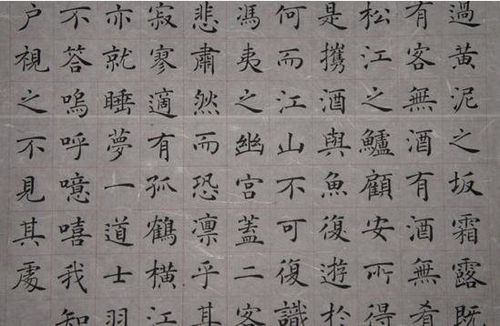 過黃泥之坂霜露既
有客無酒有酒無肴
松江之鱸顧安所得
是攜酒與魚復遊於
何而江山不可復識
馮夷之幽宮蓋二客
悲肅然而恐凜乎其
寂寥適有孤鶴橫江
亦就睡夢一道士羽
不答嗚呼噫嘻我知
戶視之不見其處